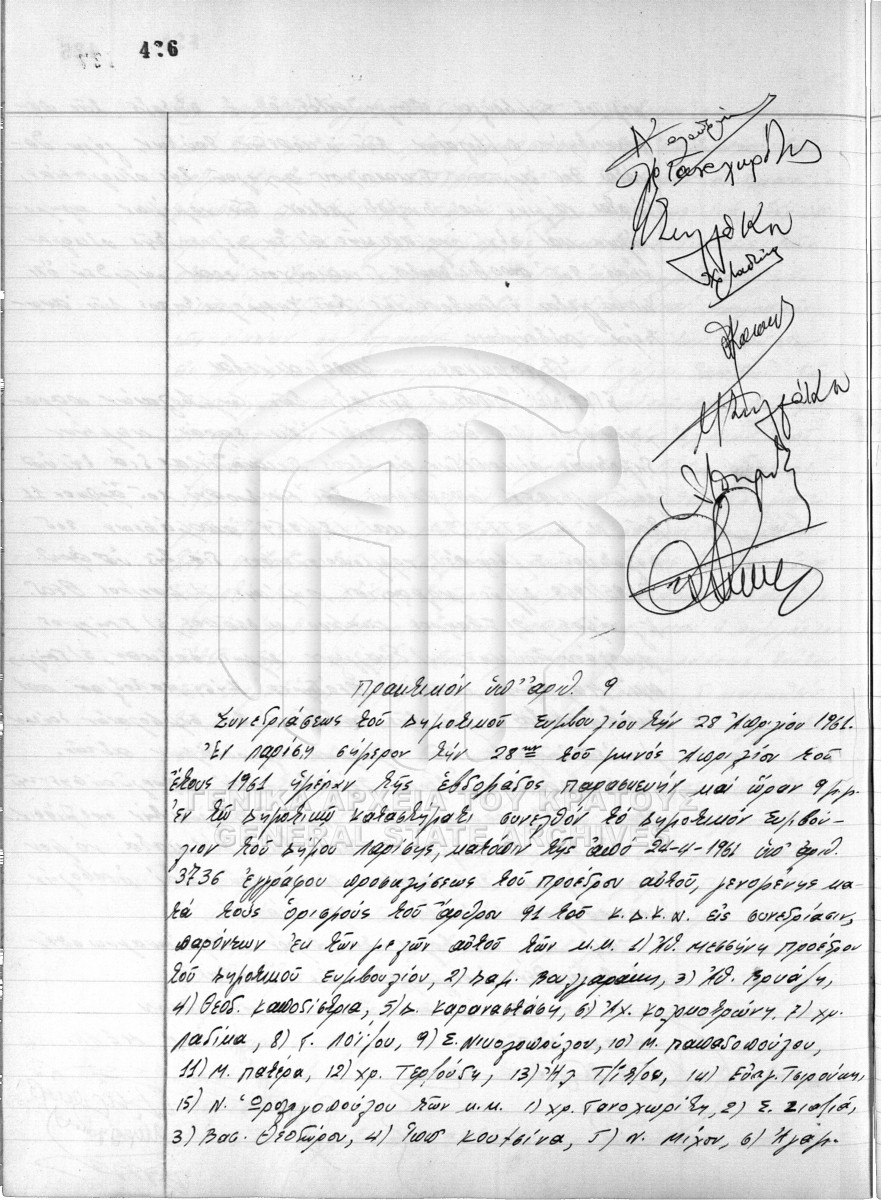 426
Πρακτικόν ὑπ' ἀριθ. 9
Συνεδριάσεως τοῦ Δημοτικοῦ Συμβουλίου τήν 28 Ἀπριλίου 1961.
Ἐν Λαρίσῃ σήμερον τήν 28ην τοῦ μηνός Ἀπριλίου τοῦ
ἔτους 1961 ἡμέραν τῆς ἑβδομάδος Παρασκευήν καί ὥραν 9 μ.μ.
ἐν τῷ Δημοτικῷ Καταστήματι συνελθόν τό Δημοτικόν Συμβού-
λιον τοῦ Δήμου Λαρίσης, κατόπιν τῆς ἀπό 24-4-1961 ὑπ' ἀριθ.
3736 ἐγγράφου προσκλήσεως τοῦ Προέδρου αὐτοῦ, γενομένης κα-
τά τούς ὁρισμούς τοῦ ἄρθρου 91 τοῦ Κ.Δ.Κ.Ν. εἰς συνεδρίασιν,
παρόντων ἐκ τῶν μελῶν αὐτοῦ τῶν κ.κ. 1) Ἀθ. Μεσσήνη Προέδρου
τοῦ Δημοτικοῦ Συμβουλίου, 2) Δαμ. Βουλγαράκη, 3) Ἀθ.
4) Θεοδ. Καποδίστρια, 5) Δ. Καραναστάση, 6) Ἀχ. Κολοκοτρώνη, 7) Χρ.
Λαδίκα, 8) Γ. 9) Σ. Νικολοπούλου, 10) Μ. Παπαδοπούλου,
11) Μ. Πατέρα, 12) Χρ. Τερζούδη, 13) 14) Εὐαγ. Τσιρούκη,
15) Ν. Ὡρολογοπούλου τῶν κ.κ. 1) Χρ. Πανοχωρίτη, 2) Σ. Σιαφιᾶ,
3) Βασ. Θεοδώρου, 4) Ἰωσ. Κουτσίνα, 5) Ν. Μίχου, 6) Ἀγαμ.
ΓΕΝΙΚΑ ΑΡΧΕΙΑ ΤΟΥ ΚΡΑΤΟΥΣ
GENERAL STATE ARCHIVES